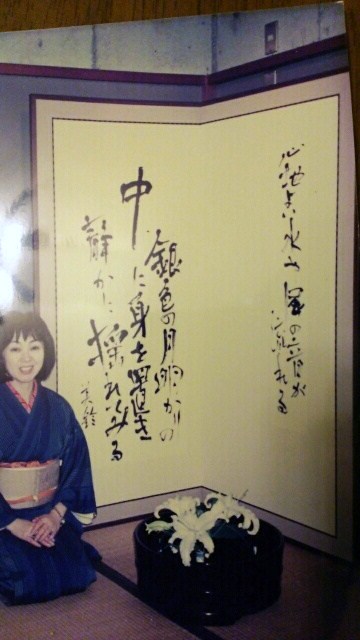 心地よい水 の音が
こぼれる
銀色の月明かりの
中に身を置き
静かに揺れてみる
美鈴